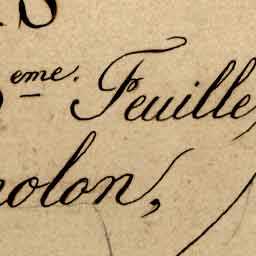 eme. Feuille
olon,